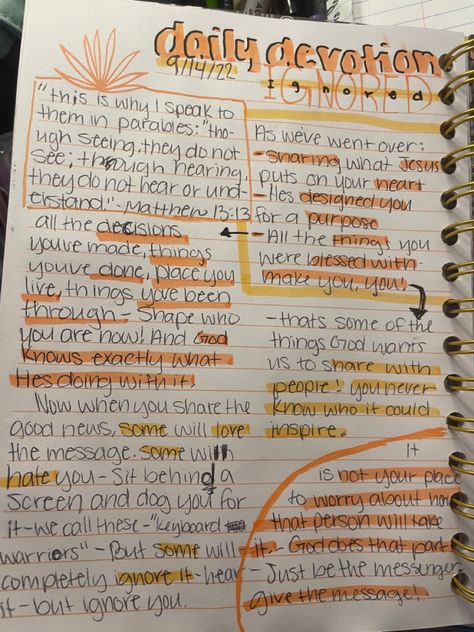 daily devotion
9/14/22
IGNORED
Ignored
"this is why I speak to
them in parables: "tho-
ugh seeing, they do not
see; though hearing,
they do not hear or und-
erstand." - Matthew 13:13
all the decisions
youve made, things
youve done, place you
live, things youve been
through - shape who
you are now! And God
knows exactly what
Hes doing with it!
Now when you share the
good news, some will love
the message. some will
hate you - sit behind a
screen and dog you for
it - we call these - "keyboard
warriors" - But some will
completely ignore it - hear
it - but ignore you.
As we've went over:
- sharing what Jesus
puts on your heart
- Hes designed you
for a purpose
- All the things you
were blessed with
make you, you!
- thats some of the
things God wants
us to share with
people! you never
know who it could
inspire.
It
is not your place
to worry about how
that person will take
it. - God does that part
- Just be the messinger
give the message!